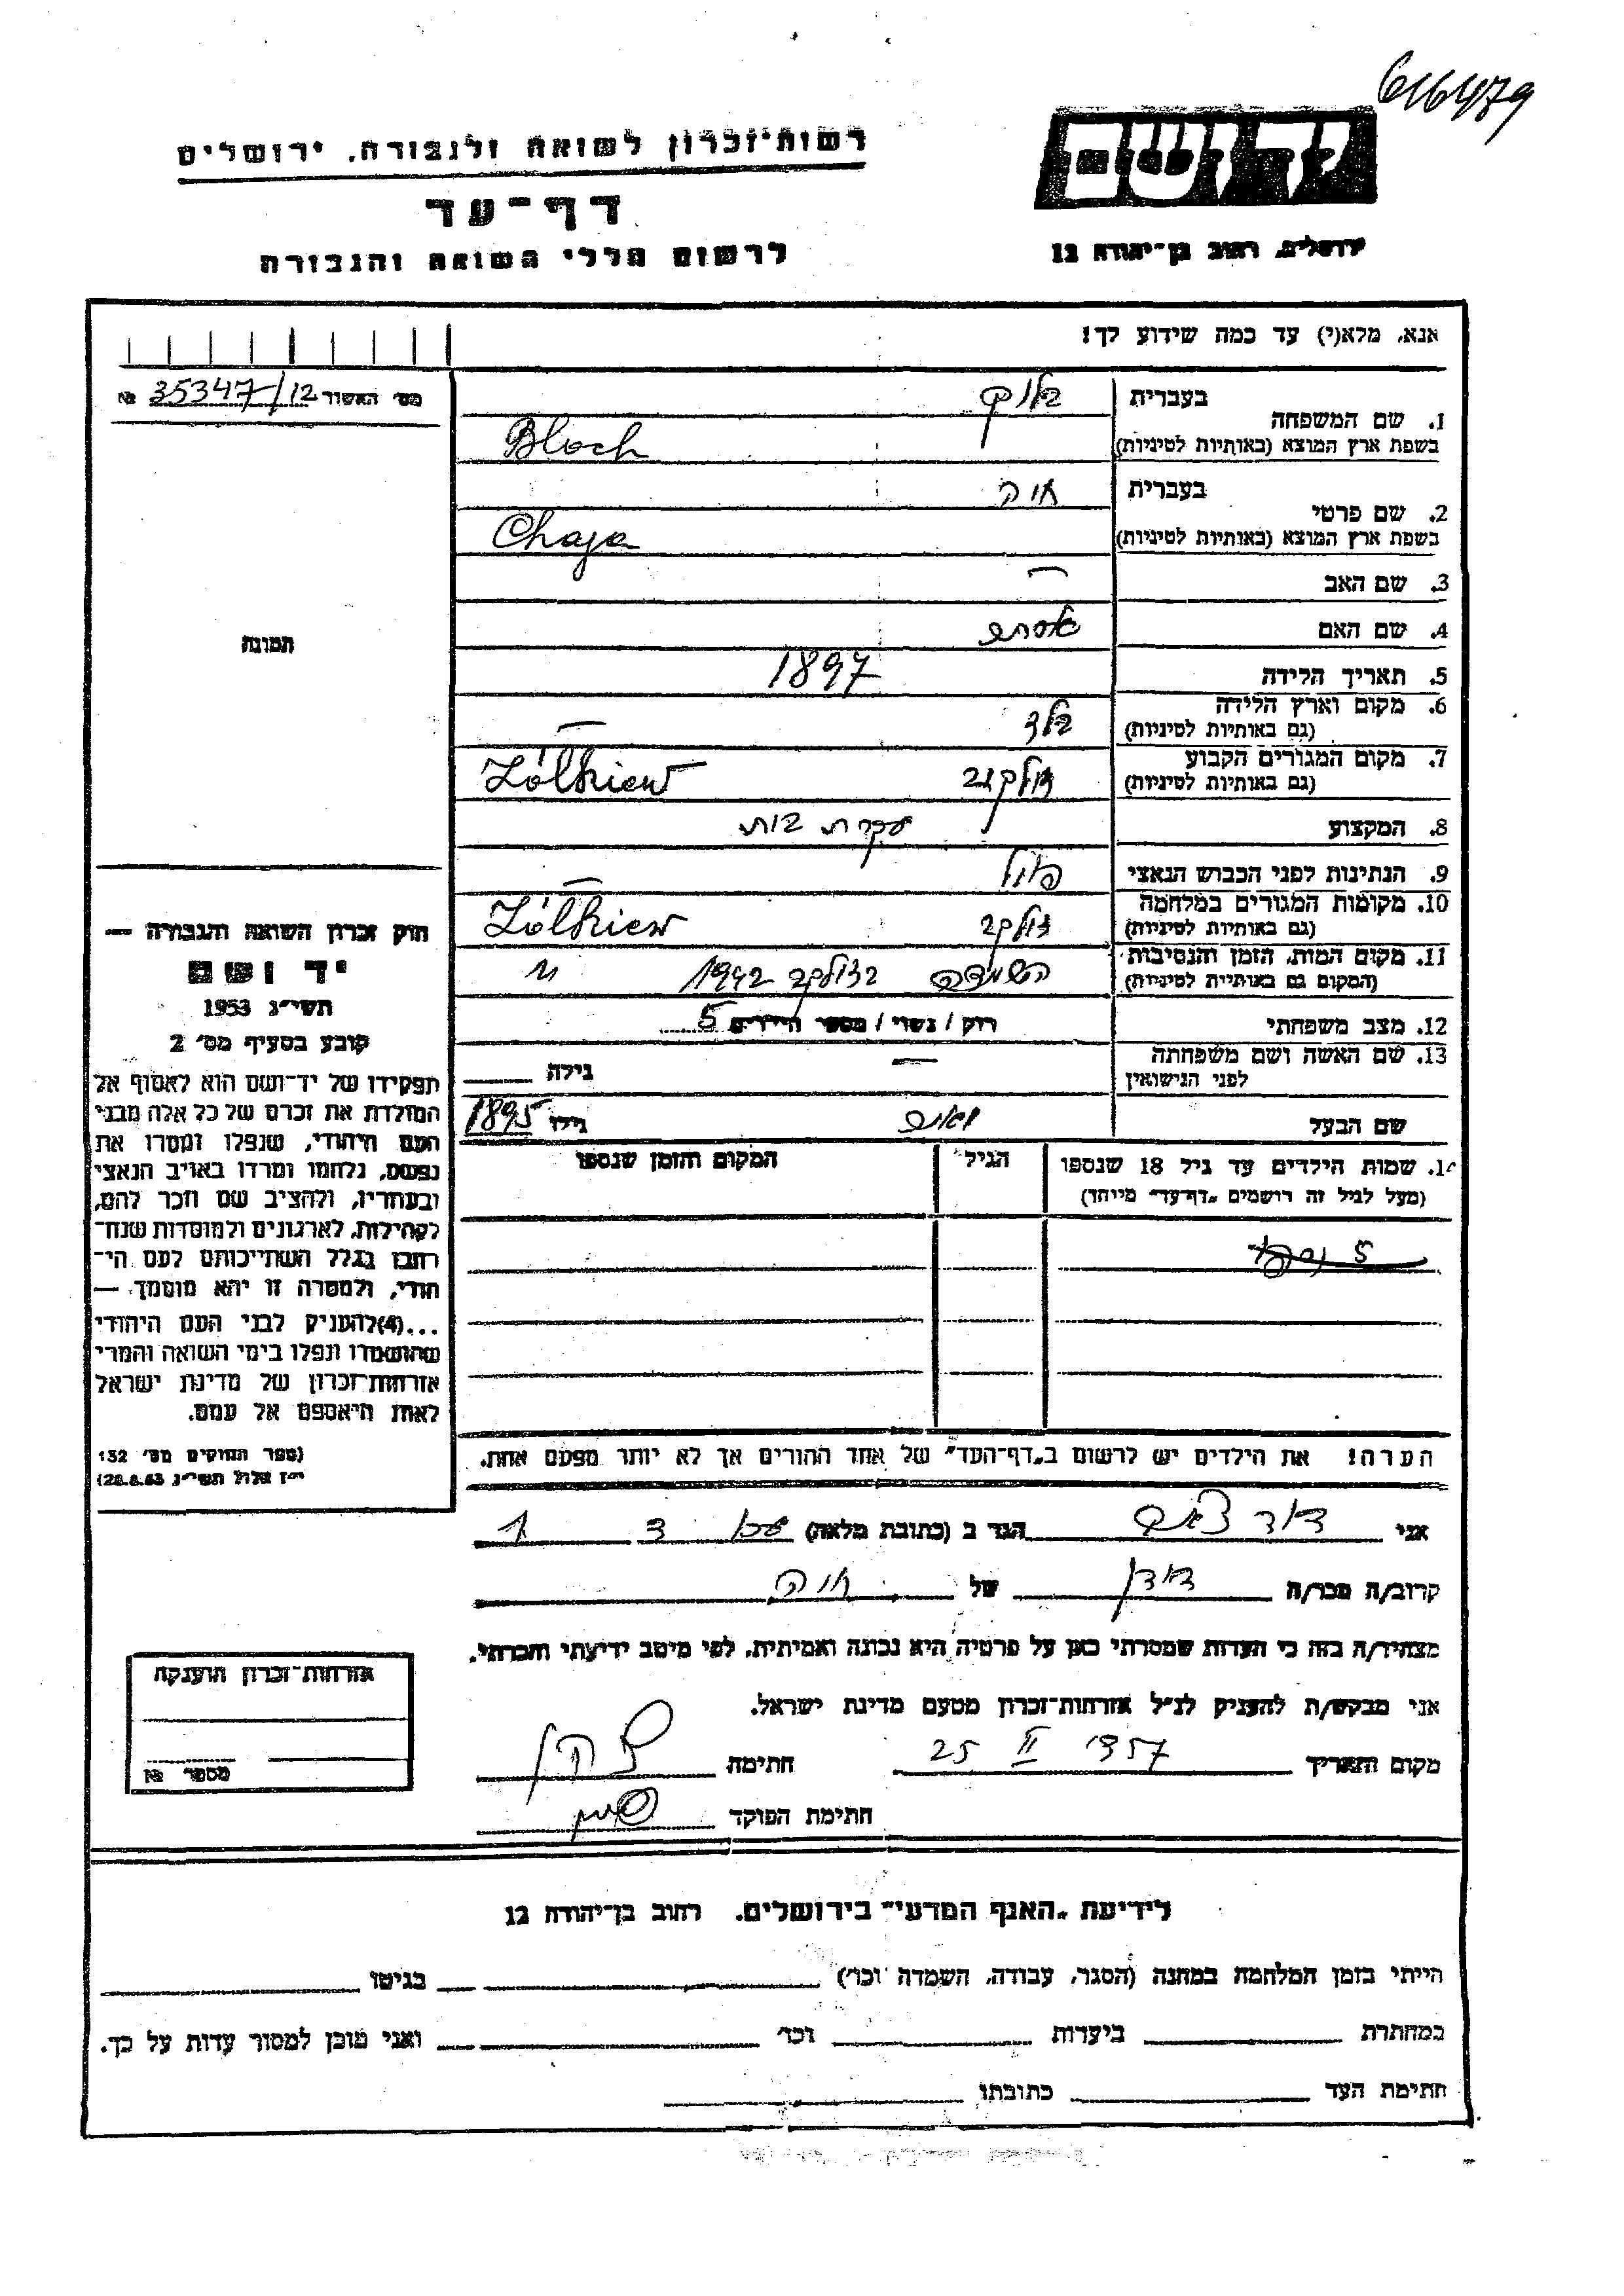 616479
יד ושם
ירושלים, רחוב בן-יהודה 12
רשות-זכרון לשואה ולגבורה, ירושלים
דף-עד
לרשום חללי השואה והגבורה
אנא, מלא(י) עד כמה שידוע לך!
מס׳ האשור 35347/12 №
1. שם המשפחה
בעברית בלוך
בשפת ארץ המוצא (באותיות לטיניות) Bloch
2. שם פרטי
בעברית חיה
בשפת ארץ המוצא (באותיות לטיניות) Chaja
3. שם האב —
4. שם האם אסתר
5. תאריך הלידה 1897
6. מקום וארץ הלידה
(גם באותיות לטיניות) —
7. מקום המגורים הקבוע זולקוב
(גם באותיות לטיניות) Żółkiew
8. המקצוע עקרת בית
9. הנתינות לפני הכבוש הנאצי פולנ
10. מקומות המגורים במלחמה זולקב
(גם באותיות לטיניות) Żółkiew
11. מקום המות, הזמן והנסיבות הושמדה בזולקב 1942
(המקום גם באותיות לטיניות)
12. מצב משפחתי רוק / נשוי / מספר הילדים 5
13. שם האשה ושם משפחתה — גילה
לפני הנישואין
שם הבעל גילו 1895
14. שמות הילדים עד גיל 18 שנספו הגיל המקום והזמן שנספו
(מעל לגיל זה רושמים „דף-עד" מיוחד)
5
הערה! את הילדים יש לרשום ב„דף-העד" של אחד ההורים אך לא יותר מפעם אחת.
תמונה
חוק זכרון השואה והגבורה —
יד ושם
תשי״ג 1953
קובע בסעיף מס׳ 2
תפקידו של יד-ושם הוא לאסוף אל
המולדת את זכרם של כל אלה מבני
העם היהודי, שנפלו ומסרו את
נפשם, נלחמו ומרדו באויב הנאצי
ובעוזריו, ולהציב שם וזכר להם,
לקהילות, לארגונים ולמוסדות שנח-
רבו בגלל השתייכותם לעם הי-
הודי, ולמטרה זו יהא מוסמך —
...(4)להעניק לבני העם היהודי
שהושמדו ונפלו בימי השואה והמרי
אזרחות-זכרון של מדינת ישראל
לאות היאספם אל עמם.
(ספר החוקים מס׳ 132
י״ז אלול תשי״ג 28.8.53)
אני דוד הגר ב (כתובת מלאה)
קרוב/ה מכר/ה דודן של חיה
מצהיר/ה בזה כי העדות שמסרתי כאן על פרטיה היא נכונה ואמיתית, לפי מיטב ידיעתי והכרתי.
אני מבקש/ת להעניק לנ״ל אזרחות-זכרון מטעם מדינת ישראל.
מקום ותאריך 25 II 1957 חתימה
חתימת הפוקד
אזרחות-זכרון הוענקה
מספר №
לידיעת „האגף המדעי" בירושלים, רחוב בן-יהודה 12
הייתי בזמן המלחמה במחנה (הסגר, עבודה, השמדה וכו׳) בגיטו
במחתרת ביערות וכו׳ ואני מוכן למסור עדות על כך.
חתימת העד כתובתו